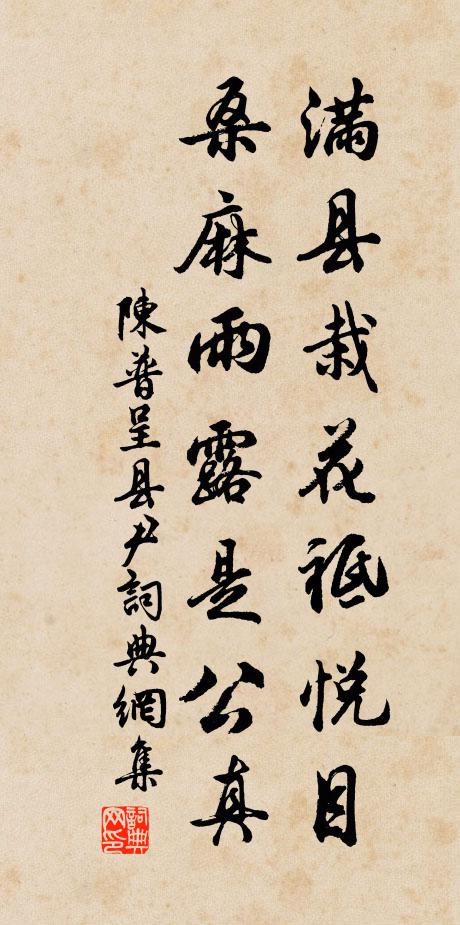 滿县栽花祗悦目
桑麻雨露是公真
陳普呈县尹詞典網集
詞典网印